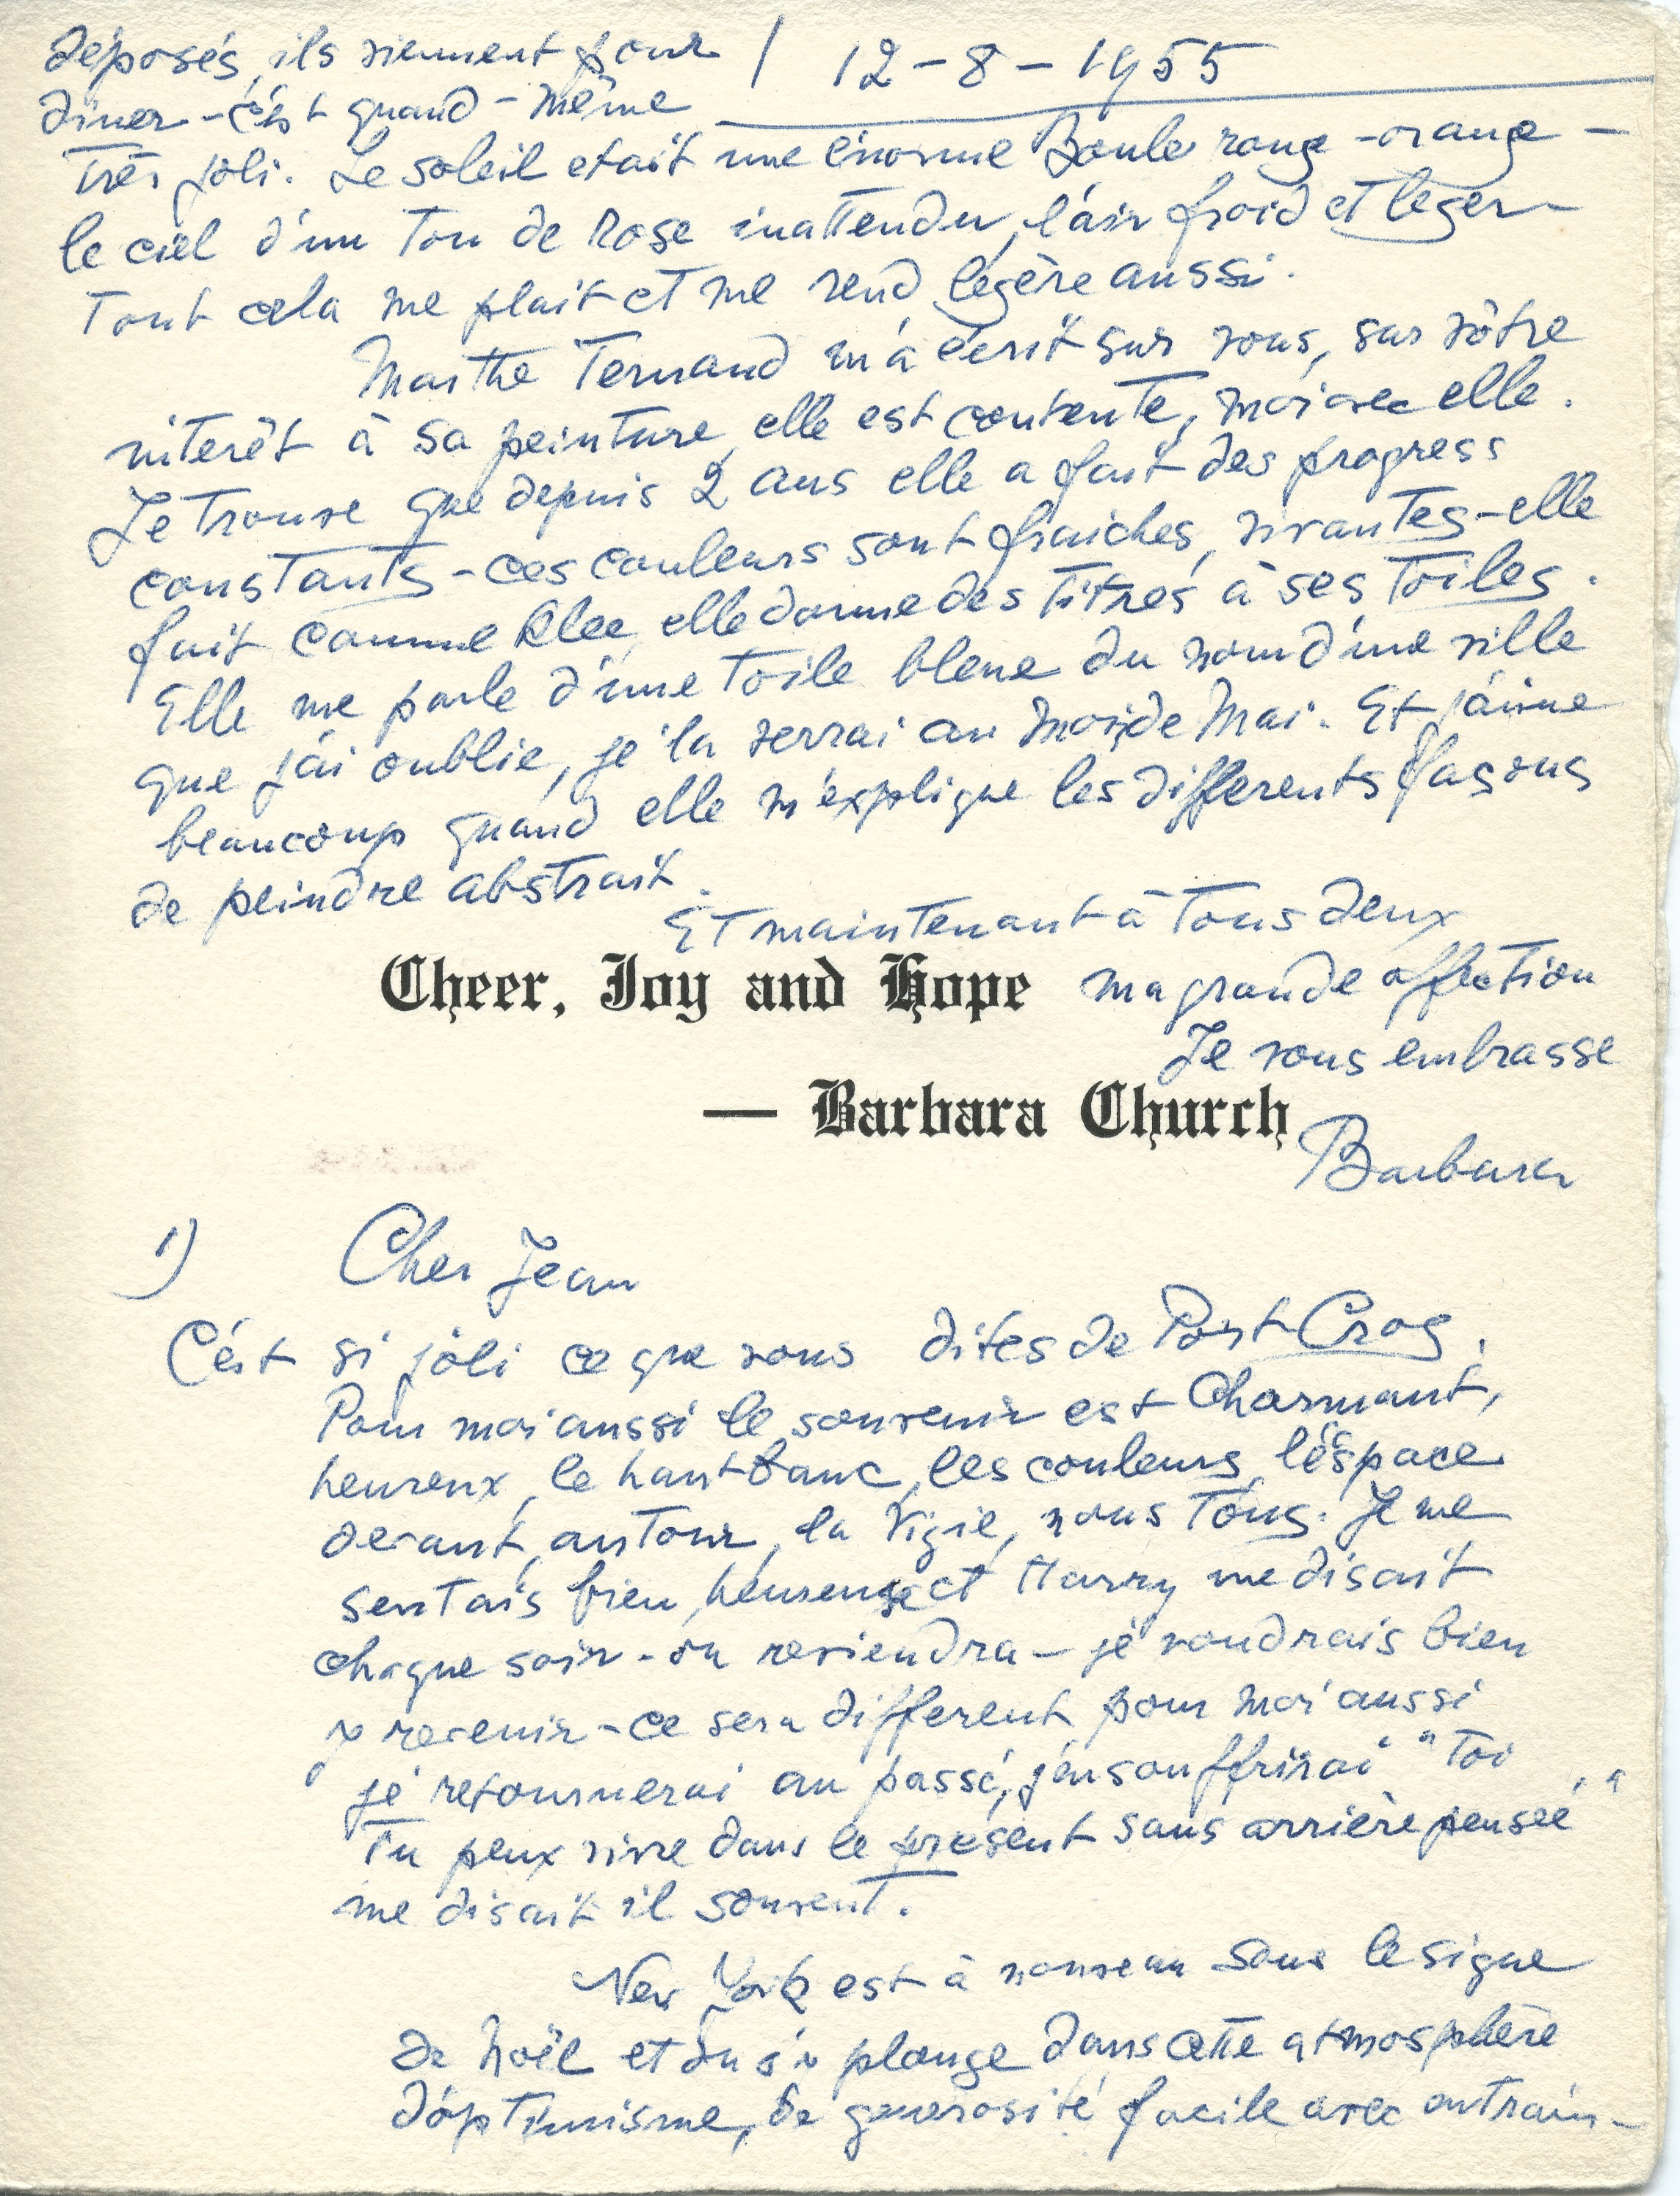 déposés, ils viennent pour
dîner - c'est quand-même
12-8-1955
très joli. Le soleil etait une énorme Boule rouge-orange -
le ciel d'un ton de Rose inattendu, l'air froid et leger -
Tout cela me plait et me rend legère aussi.
Marthe Ternand m'a écrit sur vous, sur vôtre
interêt à sa peinture, elle est contente, moi avec elle.
Je trouve que depuis 2 ans elle a fait des progress
constants - ces couleurs sont fraiches, vivantes - elle
fait comme Klee, elle donne des titres à ses toiles.
Elle me parle d'une toile bleue du nom d'une ville
que j'ai oublie, je la verrai au mois de Mai. Et j'aime
beaucoup quand elle m'explique les differents façons
de peindre abstrait.
Et maintenant à tous deux
ma grande affection
Je vous embrasse
Cheer, Joy and Hope
— Barbara Church
Barbara
1) Cher Jean
C'est si joli ce que vous dites de Port Cros.
Pour moi aussi le souvenir est charmant,
heureux, le haut banc, les couleurs, l'éspace
devant, autour, la Vigie, nous tous. Je me
sentais bien, heureuse et Harry me disait
chaque soir - on reviendra - je voudrais bien
y revenir - ce sera different pour moi aussi
je retournerai au passé, j'en souffrirai "Toi
Tu peux vivre dans le présent sans arrière pensée"
me disait il souvent.
New York est à nouveau sous le signe
de Noël et on s'y plonge dans cette atmosphère
d'optimisme, de generosité facile avec entrain -